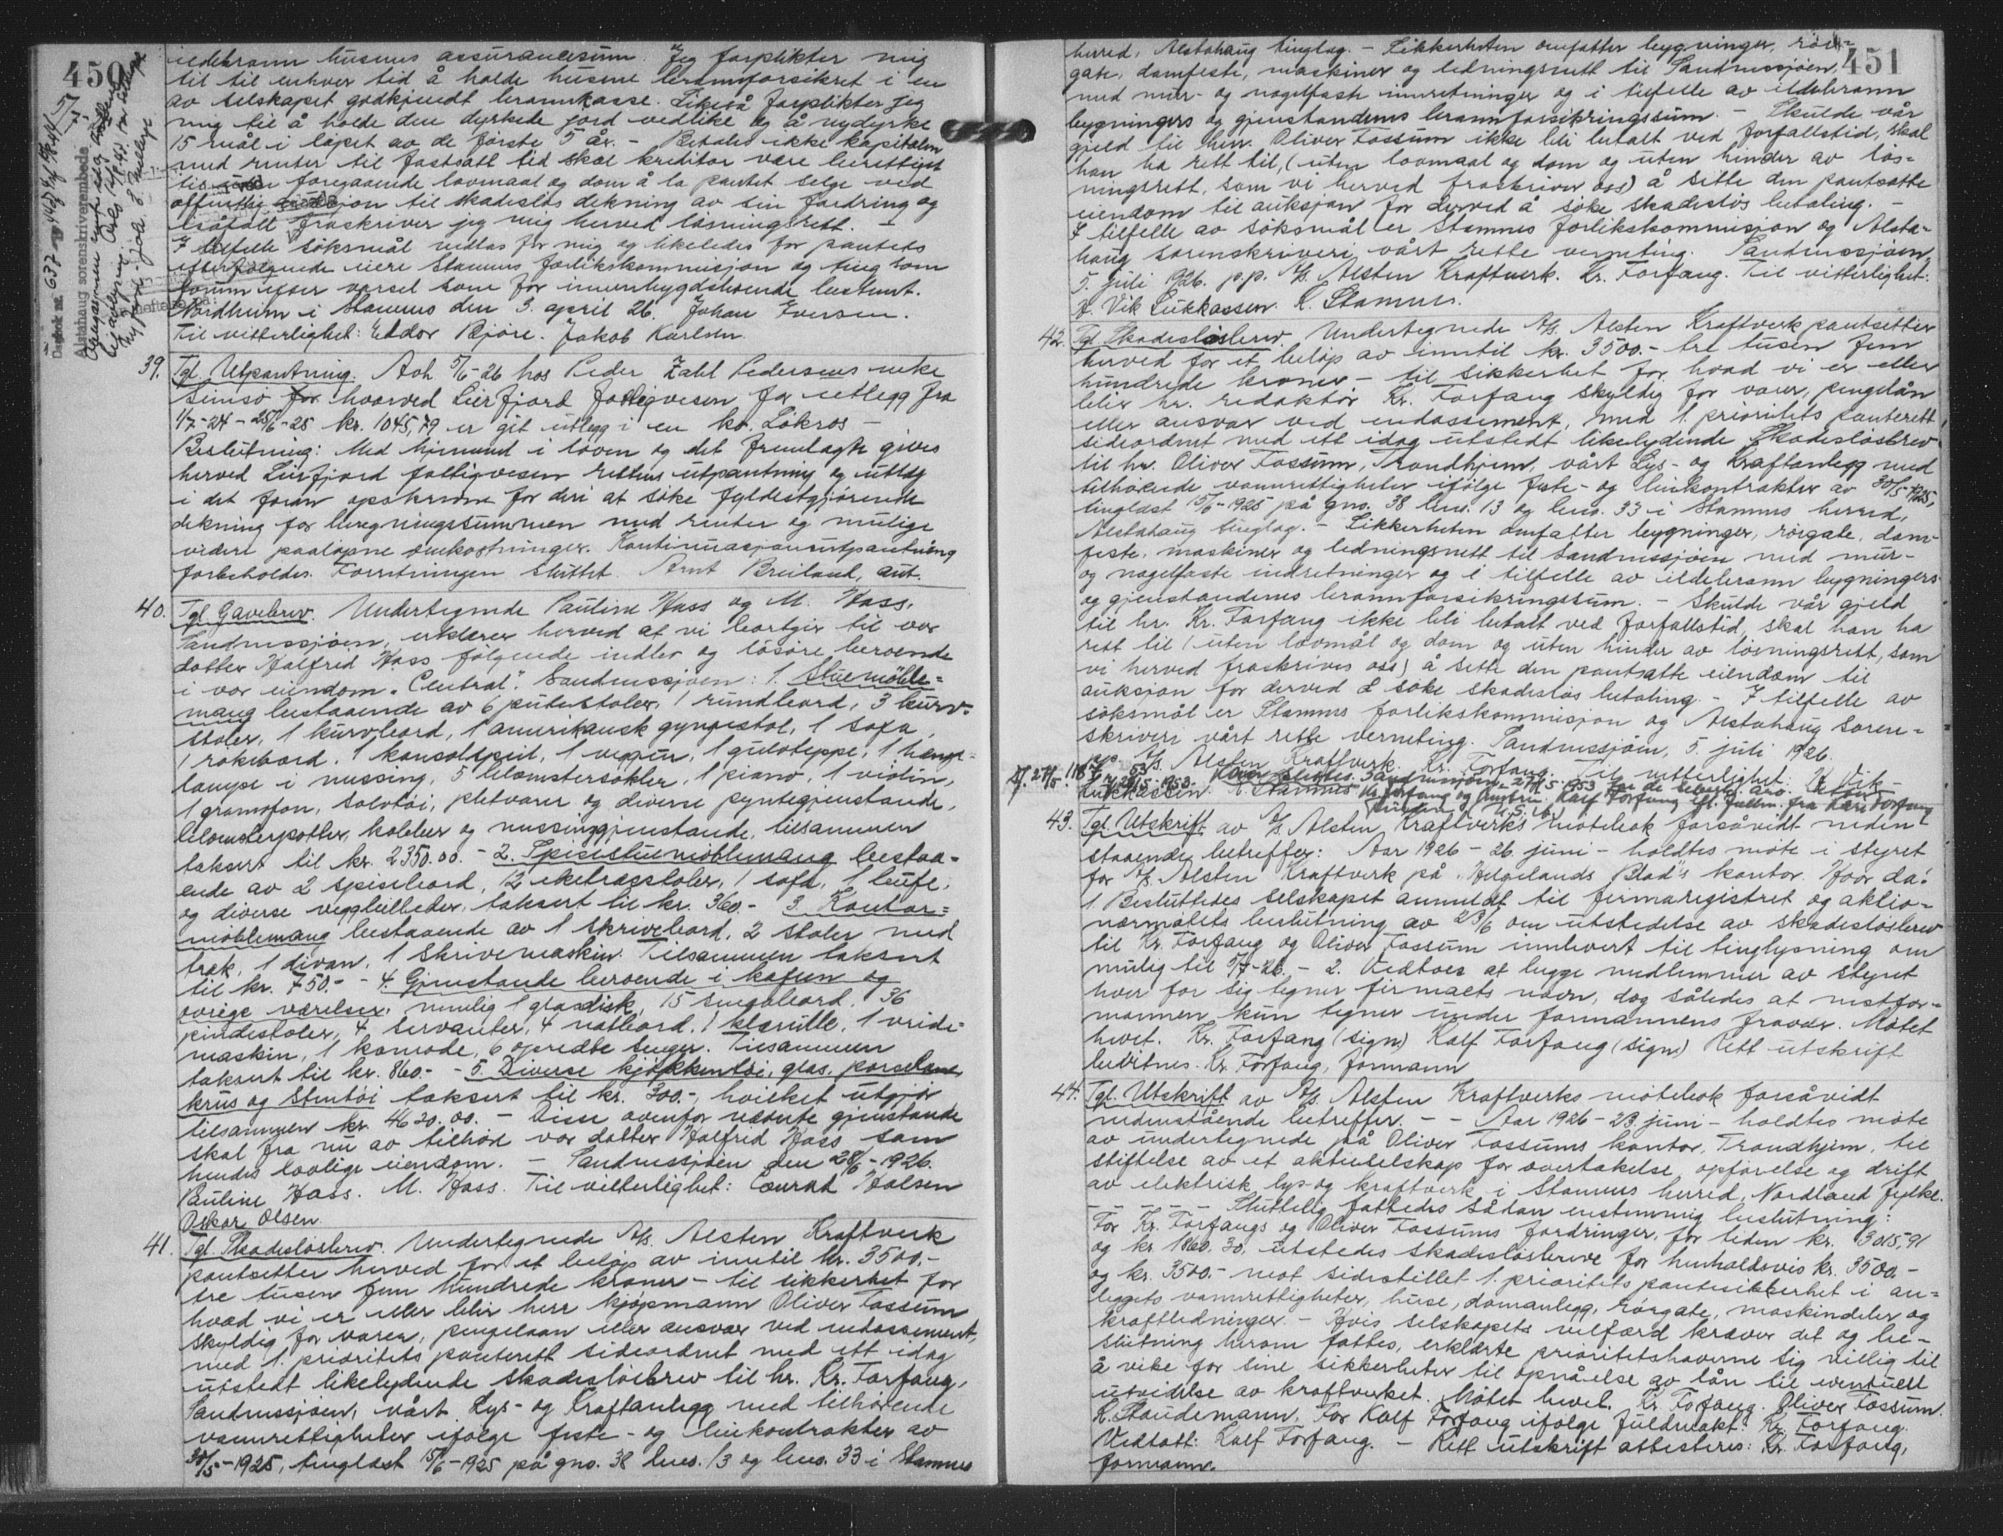 450
ildebrann husenes assurancesum. Jeg forplikter mig
til til enhver tid å holde husene brannforsikret i en
av selskapet godkjendt brannkasse. Likeså forplikter jeg
mig til å holde den dyrkede jord vedlike og å nydyrke
15 mål i løpet av de første 5 år. - Betales ikke kapitalen
med renter til fastsatt tid skal kreditor være berettiget
til foregaaende lovmaal og dom å la pantet selge ved
offentlig auksjon til skadesløs dekning av sin fordring og
isåfall fraskriver jeg mig herved løsningsrett. -
I tilfelle søksmål vedtas for mig og likeledes for pantets
efterfølgende eiere Stamnes forlikskommisjon og ting som
forum efter varsel som for innenbygdsboende bestemt.
Nordheim i Stamnes den 3. april 26. Johan Iversen.
Til vitterlighet: Eddor Bjøre. Jakob Karlsen
39. Tgl. Utpantning. Aoh 5/6-26 hos Peder Zahl Pedersens enke
Simsø for hvorved Leirfjord fattigvesen for utlegg fra
1/7-24 - 28/6-25 kr. 1045,79 er git utlegg i en ko. Likros -
Beslutning: Med hjemmel i loven og det fremlagte gives
herved Leirfjord fattigvesen rettens utpantning og utlæg
i det foran opskrevne for deri at søke fyldestgjørende
dekning for beregningssummen med renter og mulige
videre paaløpne omkostninger. Kontinuasjonsutpantning
forbeholdes. Forretningen sluttet. Arnt Breiland, aut.
40. Tgl. Gavebrev. Undertegnede Pauline Hass og M. Hass,
Sandnessjøen, erklærer herved at vi bortgir til vor
datter Halfred Hass følgende indbo og løsøre beroende
i vor eiendom "Central". Sandnessjøen: 1. Stuemøble-
mang bestaaende av 6 puterstoler, 1 rundbord, 3 kurv-
stoler, 1 kurvbord, 1 amerikansk gyngestol, 1 sofa,
1 røkebord, 1 konsolspeil, 1 veggur, 1 gulvteppe, 1 henge-
lampe i messing, 5 blomstersøkler, 1 piano, 1 violin,
1 gramofon, sølvtøi, pletvarer og diverse pyntegjenstande,
blomsterpotter, kobber og messinggjenstande, tilsammen
taksert til kr. 2350.00. - 2. Spisestuemøblemang bestaa-
ende av 2 spisebord, 12 eketræsstoler, 1 sofa, 1 bufe,
og diverse veggbilleder, taksert til kr. 360.- 3. Kontor-
møblemang bestaaende av 1 skrivebord, 2 stoler med
træk, 1 divan, 1 skrivemaskin. Tilsammen taksert
til kr. 750.- - 4. Gjenstande beroende i kafeen og
øvrige værelser, nemlig 1 glasdisk, 15 smaabord, 36
pindestoler, 4 servanter, 4 natbord, 1 klærulle, 1 vride-
maskin, 1 komode, 6 opredte senger. Tilsammen
taksert til kr. 860.- - 5. Diverse kjøkkentøi, glas, porselen,
krus og stentøi taksert til kr. 300.-, hvilket utgjør
tilsammen kr. 4620.00. - Disse ovenfor nævnte gjenstande
skal fra nu av tilhøre vor datter Halfred Hass som
hendes lovlige eiendom. - Sandnessjøen den 28/6-1926.
Pauline Hass. M. Hass. Til vitterlighet: Conrad Halsen
Oskar Olsen.
41. Tgl. Skadesløsbrev. Undertegnede A/S Alsten Kraftverk
pantsetter herved for et beløp av inntil kr. 3500.-
tre tusen fem hundrede kroner - til sikkerhet for
hvad vi er eller blir herr kjøpmann Oliver Fossum
skyldig for varer, pengelaan eller ansvar ved endossement,
med 1. prioritets panterett sideordnet med ett idag
utstedt likelydende skadesløsbrev til hr. Kr. Forfang,
Sandnessjøen, vårt Lys- og Kraftanlegg med tilhørende
vannrettigheter ifølge feste- og leiekontrakter av
30/5-1925, tinglæst 15/6-1925 på gno. 38 bno. 13 og bno. 33 i Stamnes
451
herred, Alstahaug tinglag. - Sikkerheten omfatter bygninger, rør-
gate, damfeste, maskiner og ledningsnett til Sandnessjøen,
med mur- og nagelfaste innretninger og i tilfelle av ildebrann
bygningers og gjenstandens brannforsikringssum. - Skulde vår
gjeld til herr. Oliver Fossum ikke bli betalt ved forfallstid, skal
han ha rett til, (uten lovmaal og dom og uten hinder av løs-
ningsrett, som vi herved fraskriver oss) å sette den pantsatte
eiendom til auksjon for derved å søke skadesløs betaling. -
I tilfelle av søksmål er Stamnes forlikskommisjon og Alsta-
haug sorenskriveri vårt rette verneting. Sandnessjøen,
5. juli 1926. p.p. A/S Alsten Kraftverk. Kr. Forfang. Til vitterlighet:
A. Vik Lukkassen. K. Stamnes.
42. Tgl. Skadesløsbrev. Undertegnede A/S. Alsten Kraftverk pantsetter
herved for et beløp av inntil kr. 3500.- tre tusen fem
hundrede kroner - til sikkerhet for hvad vi er eller
blir hr. redaktør Kr. Forfang skyldig for varer, pengelån
eller ansvar ved endossement, med 1 prioritets panterett
sideordnet med ett idag utstedt likelydende Skadesløsbrev
til hr. Oliver Fossum, Trondhjem, vårt Lys- og Kraftanlegg med
tilhørende vannrettigheter ifølge feste- og leiekontrakter av 30/5-1925,
tinglæst 15/6-1925 på gno. 38 bno. 13 og bno. 33 i Stamnes herred,
Alstahaug tinglag. - Sikkerheten omfatter bygninger, rørgate, dam-
feste, maskiner og ledningsnett til Sandnessjøen med mur-
og nagelfaste indretninger og i tilfelle av ildebrann bygningers
og gjenstandenes brannforsikringssum. - Skulde vår gjeld
til hr. Kr. Forfang ikke bli betalt ved forfallstid, skal han ha
rett til (uten lovmål og dom og uten hinder av løsningsrett, som
vi herved fraskrives oss) å sette den pantsatte eiendom til
auksjon for derved å søke skadesløs betaling - I tilfelle av
søksmål er Stamnes forlikskommisjon og Alstahaug soren-
skriveri vårt rette verneting. Sandnessjøen, 5. juli 1926.
p.p. A/S Alsten Kraftverk. Kr. Forfang. Til vitterlighet: A. Vik
Lukkassen. K. Stamnes
43. Tgl. Utskrift av A/S Alsten Kraftverks møtebok forsåvidt neden-
staaende betreffer: Aar 1926 - 26 juni - holdtes møte i styret
for A/S Alsten Kraftverk på "Helgelands Blad"s kontor. Hvor da:
1 Besluttedes selskapet anmeldt til firmaregistret og aktio-
nærmøtets beslutning av 23/6 om utstedelse av skadesløsbrev
til Kr. Forfang og Oliver Fossum innlevert til tinglysning om
mulig til 5/7-26. - 2. Vedtoes at begge medlemmer av styret
hver for sig tegner firmaets navn, dog således at nestfor-
mannen kun tegner under formannens fravær. Møtet
hevet. Kr. Forfang (sign) Kalf Forfang (sign) Rett utskrift
bevitnes. Kr. Forfang, formann
44. Tgl. Utskrift av A/S. Alsten Kraftverks møtebok forsåvidt
nedenstående betreffer. - - Aar 1926 - 23 juni - holdtes møte
av undertegnede på Oliver Fossums kontor, Trondhjem, til
stiftelse av et aktieselskap for overtakelse, opførelse og drift
av elektrisk lys- og kraftverk i Stamnes herred, Nordland fylke.
- - - - - Sluttelig fattedes sådan enstemmig beslutning:
For Kr. Forfangs og Oliver Fossums fordringer, for tiden kr. 3015,91
og kr. 1860.30. utstedes skadesløsbreve for henholdsvis kr. 3500.-
og kr. 3500.- mot sidestillet 1. prioritets pantesikkerhet i an-
leggets vannrettigheter, huse, damanlegg, rørgate, maskindeler og
kraftledninger. - Hvis selskapets velferd kræver det og be-
slutning herom fattes, erklærte prioritetshaverne sig villig til
å vike for sine sikkerheter til opnåelse av lån til eventuell
utvidelse av kraftverket. Møtet hevet. Kr. Forfang. Oliver Fossum.
K. Staudemann. For Kalf Forfang ifølge fuldmakt: Kr. Forfang.
Vedtatt: Kalf Forfang. - Rett utskrift attesteres: Kr. Forfang,
formann.